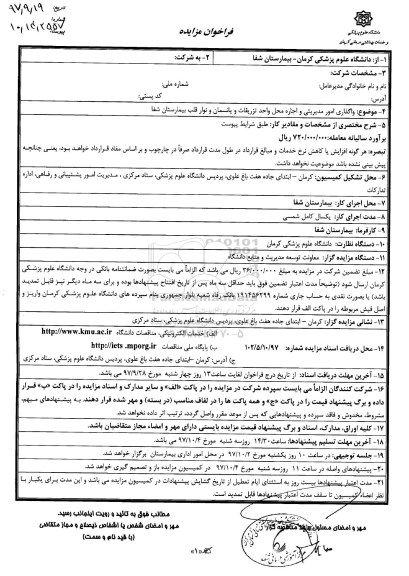 تاریخ ۹۷/۹/۱۹
دانشگاه علوم پزشکی
و خدمات بهداشتی درمانی کرمان
فراخوان مزایده
۱- از: دانشگاه علوم پزشکی کرمان- بیمارستان شفا
۲- به شرکت:
۳- مشخصات شرکت:
نام و نام خانوادگی مدیرعامل:
شماره ملی:
آدرس:
کد پستی:
۴- موضوع: واگذاری امور مدیریتی و اجاره محل واحد تزریقات و پانسمان و نوار قلب بیمارستان شفا
۵- شرح مختصری از مشخصات و مقادیر کار: طبق شرایط پیوست
برآورد سالیانه معامله: ۷۲۰/۰۰۰/۰۰۰ ریال
تبصره: هر گونه افزایش یا کاهش نرخ خدمات و مبالغ قرارداد در طول مدت قرارداد صرفاً در چارچوب و بر اساس مفاد قرارداد خواهد بود، یعنی چنانچه
پیش بینی نشده باشد موضوعیت نخواهد داشت.
۶- محل تشکیل کمیسیون: کرمان – ابتدای جاده هفت باغ علوی، پردیس دانشگاه علوم پزشکی، ستاد مرکزی ، مدیریت امور پشتیبانی و رفاهی، اداره
تدارکات
۷- محل اجرای کار: بیمارستان شفا
۸- مدت اجرای کار: یکسال کامل شمسی
۹- کارفرما: بیمارستان شفا
۱۰- دستگاه نظارت: دانشگاه علوم پزشکی کرمان
۱۱- دستگاه مزایده گزار: معاونت توسعه مدیریت و منابع دانشگاه
۱۲- مبلغ تضمین شرکت در مزایده به مبلغ ۳۶/۰۰۰/۰۰۰ ریال می باشد که الزاماً می بایست بصورت ضمانتنامه بانکی در وجه دانشگاه علوم پزشکی
کرمان ارسال شود (توضیحاً مدت اعتبار تضمین فوق باید حداقل سه ماه پس از تاریخ افتتاح پیشنهادها بوده و برای سه ماه دیگر نیز قابل تمدید
باشد) یا بصورت نقدی به حساب جاری شماره ۱۱۱۴۵۶۲۹۹ بانک رفاه شعبه بلوار جمهوری بنام سپرده های دانشگاه علوم پزشکی کرمان واریز و
اصل فیش مربوطه را در پاکت الف قرار دهند.
۱۳- نشانی مزایده گزار: کرمان – ابتدای جاده هفت باغ علوی، پردیس دانشگاه علوم پزشکی، ستاد مرکزی
۱۴- محل دریافت اسناد مزایده شماره: ۱۰۲/۵/۱۰/۹۷
الف) خدمات الکترونیکی، مناقصات دانشگاه http://www.kmu.ac.ir
ب) پایگاه ملی مناقصات http://iets.mporg.ir
ج) آدرس: کرمان –ابتدای جاده هفت باغ علوی، پردیس دانشگاه علوم پزشکی، ستاد مرکزی
۱۵- آخرین مهلت دریافت اسناد: از تاریخ درج فراخوان لغایت ساعت ۱۳ روز چهار شنبه مورخ ۹۷/۹/۲۸ می باشد.
۱۶- شرکت کنندگان الزاماً می بایست سپرده شرکت در مزایده را در پاکت «الف» و سایر مدارک و اسناد مزایده را در پاکت «ب» قرار
داده و برگ پیشنهاد قیمت را در پاکت «ج» و همه پاکت ها را در لفاف مناسب (در بسته) و مهر شده قرار دهند. به پیشنهادهای مبهم،
مشروط، مخدوش و فاقد سپرده و پیشنهادهایی که پس از موعد مقرر واصل گردد، ترتیب اثر داده نخواهد شد.
۱۷- کلیه اوراق، مدارک، اسناد و برگ پیشنهاد قیمت مزایده بایستی دارای مهر و امضاء مجاز متقاضیان باشد.
۱۸- آخرین مهلت تسلیم پیشنهادها: ساعت ۱۴/۳۰ روزسه شنبه مورخ ۹۷/۱۰/۴ می باشد.
۱۹- جلسه توجیهی: در ساعت ۱۰ روز یکشنبه مورخ ۹۷/۱۰/۲ در محل امور اداری بیمارستان برگزار خواهد شد.
۲۰- پیشنهادهای واصله در ساعت ۱۱ روز سه شنبه مورخ ۹۷/۱۰/۴ در کمیسیون مزایده باز و تصمیم گیری خواهد شد.
۲۱- مدت اعتبار پیشنهادها بیست روز به استثنای ایام تعطیل از تاریخ گشایش پیشنهادات در کمیسیون مزایده می باشد و این مدت برای یکبار با
نظر اعضاء کمیسیون تا سقف مدت اعتبار پیشنهادها قابل تمدید است.
مطالب فوق به تائید و رویت اینجانب رسید.
مهر و امضای شخص یا اشخاص ذیصلاح و مجاز متقاضی
(با قید نام و سمت)
مهر و امضای مسئول